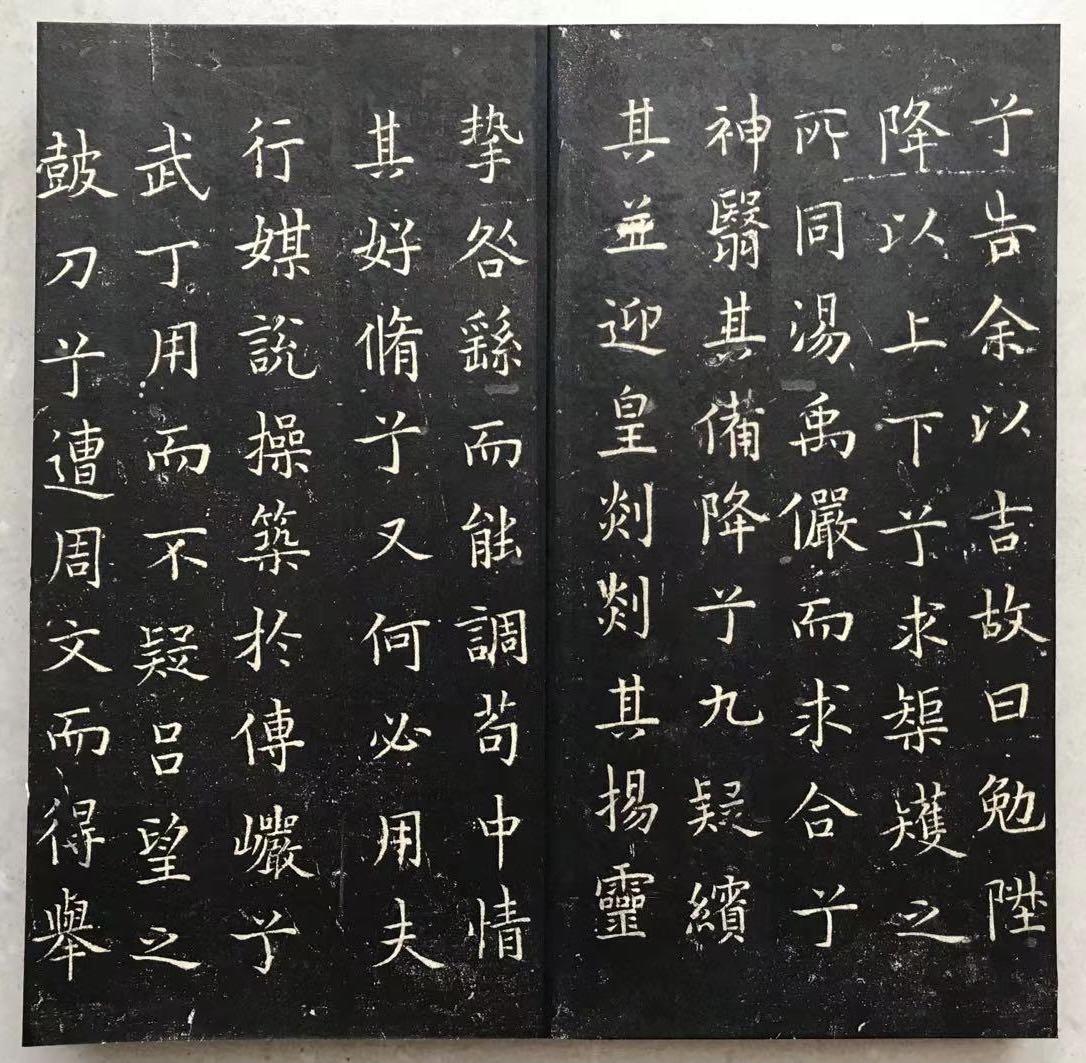 兮告余以吉故曰勉陞
降以上下兮求榘矱之
所同湯禹儼而求合兮
神翳其備降兮九疑繽
其並迎皇剡剡其揚靈
摯咎繇而能調苟中情
其好脩兮又何必用夫
行媒說操築於傅巖兮
武丁用而不疑呂望之
鼓刀兮遭周文而得舉